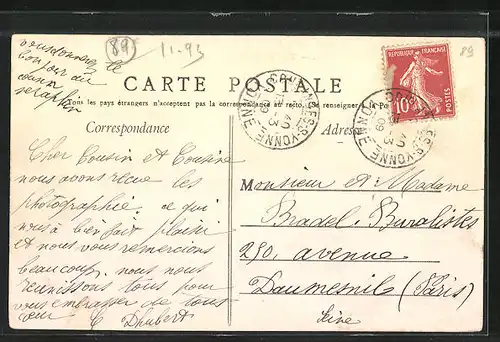 vous donnerez le
bonjour au
cousin
seraphin
89
11-93
CARTE POSTALE
Tous les pays étrangers n'acceptent pas la correspondance au recto. (Se renseigner à la Po
Correspondance
Adresse
REPUBLIQUE FRANÇAISE
10c
POSTES
89
COURLON-S-YONNE
YONNE
3
09
Cher Cousin et Cousine
nous avons recue les
photographie ce qui
nous à bien fait plaisir
et nous vous remercions
beaucoup. nous nous
reunissons tous pour
vous embrasser de tous
cœur
Monsieur et Madame
Bradel Buralistes
250, avenue
Daumesnils (Paris)
Seine